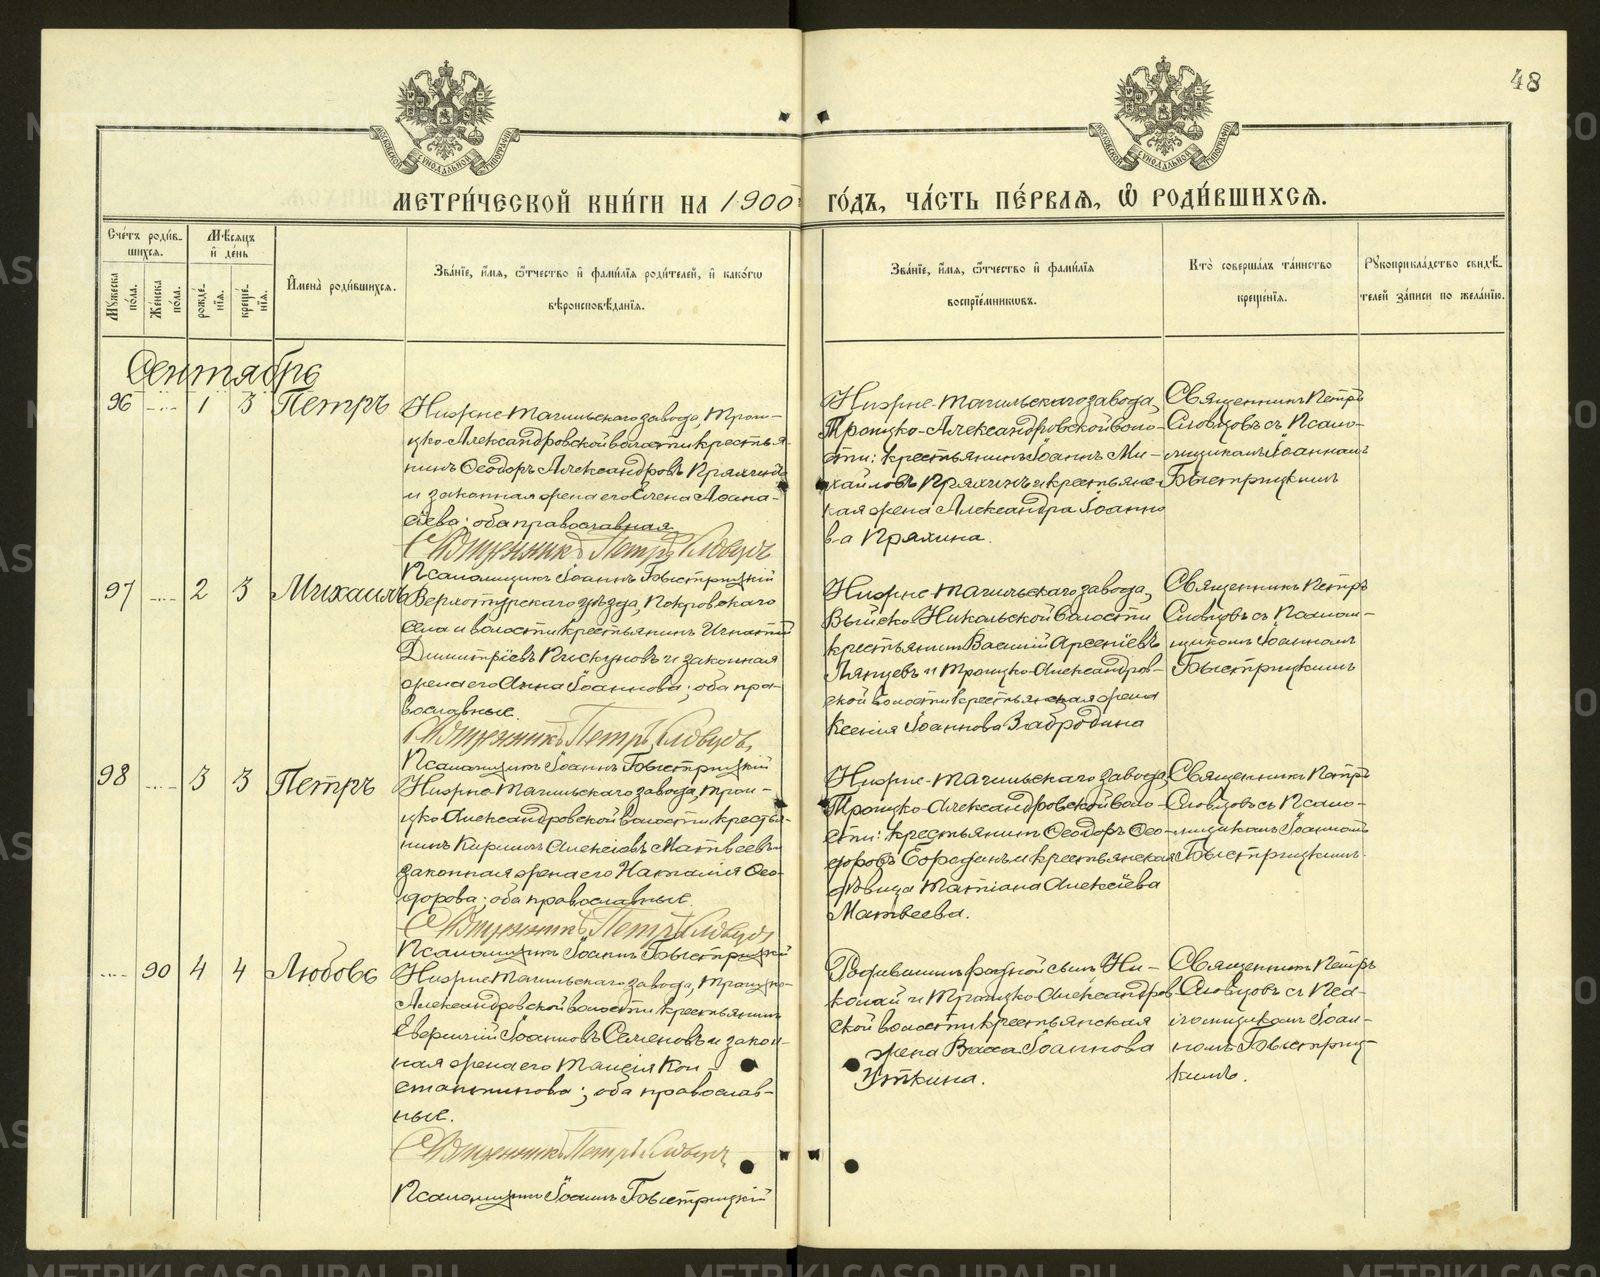 48
МЕТРИ́ЧЕСКОЙ КНИ́ГИ НА 1900
ГО́ДЪ, ЧА́СТЬ ПЕ́РВАѦ, Ѡ РОДИ́ВШИХСѦ.
Сче́тъ роди́в-
шихсѧ.
Мѣ́сѧцъ
и҆ де́нь
Мꙋ́жеска
по́ла.
Же́нска
по́ла.
рожде́-
нїѧ.
креще́-
нїѧ.
И҆мена̀ роди́вшихсѧ.
Зва́нїе, и҆́мѧ, ѻ҆́тчество и҆ фами́лїѧ роди́телей, и҆ како́гѡ
вѣроисповѣ́данїѧ.
Зва́нїе, и҆́мѧ, ѻ҆́тчество и҆ фами́лїѧ
воспрїе́мникѡвъ.
Кто̀ соверша́лъ та́инство
креще́нїѧ.
Рꙋкоприкла́дство свидѣ́-
телей за́писи по жела́нїю.
Сентябрь
96 1 3 Петръ
Нижне-Тагильскаго завода, Трои-
цко-Александровской волости крестья-
нинъ Ѳеодоръ Александровъ Пряхинъ
и законная жена его Елена Аѳана-
сіева; оба православная
Священникъ Петръ Словцовъ
Псаломщикъ Іоаннъ Быстрицкій
Нижне-Тагильскаго завода,
Троицко-Александровской воло-
сти: крестьянинъ Іоаннъ Ми-
хайловъ Пряхинъ и крестьянс-
кая жена Александра Іоанно
в-а Пряхина.
Священникъ Петръ
Словцовъ съ Псало-
мщикомъ Іоанномъ
Быстрицкимъ
97 2 3 Михаилъ
Верхотурскаго уѣзда, Покровскаго
села и волости крестьянинъ Игнатій
Димитріевъ Пискуновъ и законная
жена его Анна Іоаннова; оба пра-
вославные.
Священникъ Петръ Словцовъ
Псаломщикъ Іоаннъ Быстрицкій
Нижне-Тагильскаго завода,
Выйско-Никольской волости
крестьянинъ Василій Арсеніевъ
и Троицко-Александров-
ской волости крестьянская жена
Ксенія Іоаннова Забродина
Священникъ Петръ
Словцовъ съ Псалом-
щикомъ Іоанномъ
Быстрицкимъ
98 3 3 Петръ
Нижне-Тагильскаго завода, Трои-
цко-Александровской волости крестья-
нинъ Кириллъ Алексіевъ Матвеевъ и
законная жена его Наталія Ѳео-
дорова; оба православные.
Священникъ Петръ Словцовъ
Псаломщикъ Іоаннъ Быстрицкій
Нижне-Тагильскаго завода,
Троицко-Александровской воло-
сти: крестьянинъ Ѳеодоръ Ѳео-
доровъ и крестьянская
дѣвица Татіана Алексіева
Матвеева.
Священникъ Петръ
Словцовъ съ Псало-
мщикомъ Іоанномъ
Быстрицкимъ.
90 4 4 Любовь
Нижне-Тагильскаго завода, Троицко-
Александровской волости крестьянинъ
Іоанновъ Семеновъ и закон-
ная жена его Таисія Кон-
стантинова; оба православ-
ные.
Священникъ Петръ Словцовъ
Псаломщикъ Іоаннъ Быстрицкій
Родившимъ родной сынъ Ни-
колай и Троицко-Александров-
ской волости крестьянская
жена Васса Іоаннова
Уткина.
Священникъ Петръ
Словцовъ съ Пса-
ломщикомъ Іоан-
номъ Быстриц-
кимъ.